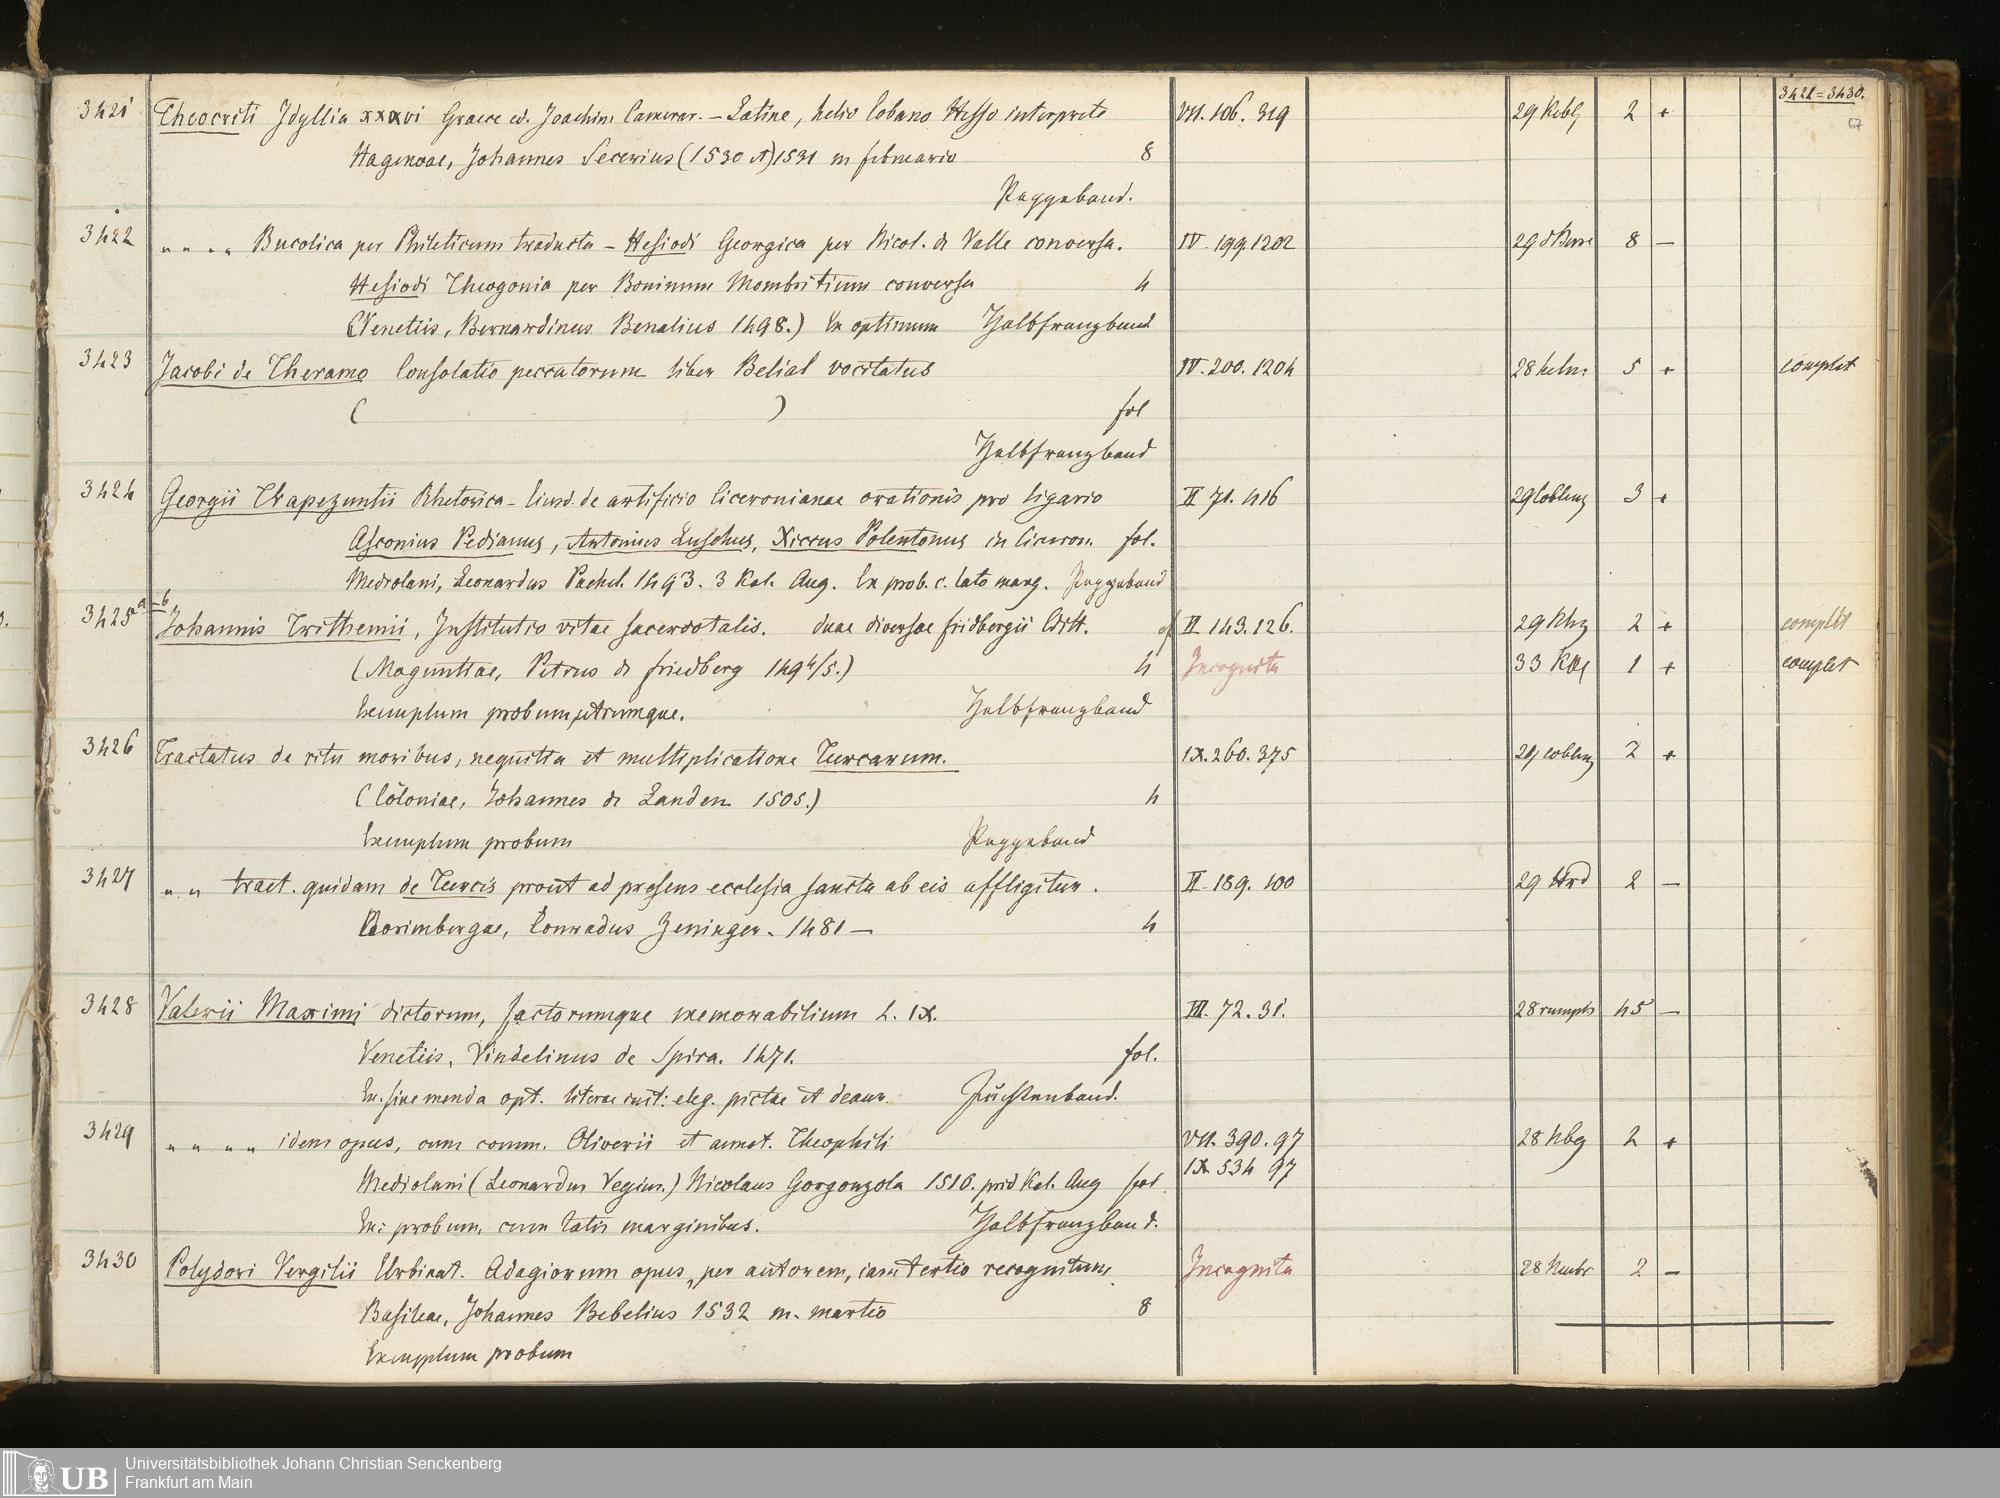 3421=3430.
67
3421 Theocriti Idyllia xxxvi Graece ed. Joachim Camerar. – Latine, helio Eobano Hesso interprete VII. 106. 319 29 2 +
Hagenoae, Johannes Secerius (1530 et) 1531 m februario 8
Pappeband.
3422 " " " " Bucolica per Phileticum traducta – Hesiodi Georgica per Nicol. de Valle conversa. IV. 199. 1202 29 8 –
Hesiodi Theogonia per Boninum Mombritium conversa 4
(Venetiis, Bernardinus Benalius 1498.) Ex optimum Halbfranzband
3423 Jacobi de Theramo Consolatio peccatorum liber Belial vocitatus IV. 200. 1204 28 5 + complet
( ) fol
Halbfranzband
3424 Georgii Trapezuntii Rhetorica – Eiusd. de artificio Ciceronianae orationis pro Ligario II 71. 416 29 Coblenz 3 +
Asconius Pedianus, Antonius Luschus, Xiccus Polentonus in Ciceron. fol.
Mediolani, Leonardus Pachel. 1493. 3 Kal. Aug. Ex prob. c. lato marg. Pappeband
3425 a–b Johannis Trithemii, Institutio vitae sacerdotalis. duae diversae fridbergii Editt. II 143. 126. 29 2 + complet
(Maguntiae, Petrus de friedberg 1494/5.) 4 Incognita 33 1 + complet
Exemplum probum utrumque. Halbfranzband
3426 Tractatus de ritu moribus, nequitia et multiplicatione Turcarum. IX. 260. 375 29 coblenz 2 +
(Coloniae, Johannes de Landen 1505.) 4
Exemplum probum Pappeband
3427 " " tract. quidam de Turcis prout ad presens ecclesia sancta ab eis affligitur. II. 189. 100 29 2 –
Norimbergae, Conradus Zeninger. 1481 – 4
3428 Valerii Maximi dictorum, factorumque memorabilium L. IX. III. 72. 31. 28 45 –
Venetiis, Vindelinus de Spira. 1471. fol.
Ex. sine menda opt. literae init: eleg. pictae et deaur. Juchtenband.
3429 " " " " idem opus, cum comm. Oliverii et annot. Theophili VII. 390. 97 28 2 +
IX 534 97
Mediolani (Leonardus Vegius.) Nicolaus Gorgonzola 1510. prid Kal. Aug fol
Ex: probum, cum latis marginibus. Halbfranzband.
3430 Polydori Vergilii Urbinat. Adagiorum opus, per autorem, iam tertio recognitum. Incognita 28 2 –
Basileae, Johannes Bebelius 1532 m. martio 8
Exemplum probum
UB
Universitätsbibliothek Johann Christian Senckenberg
Frankfurt am Main